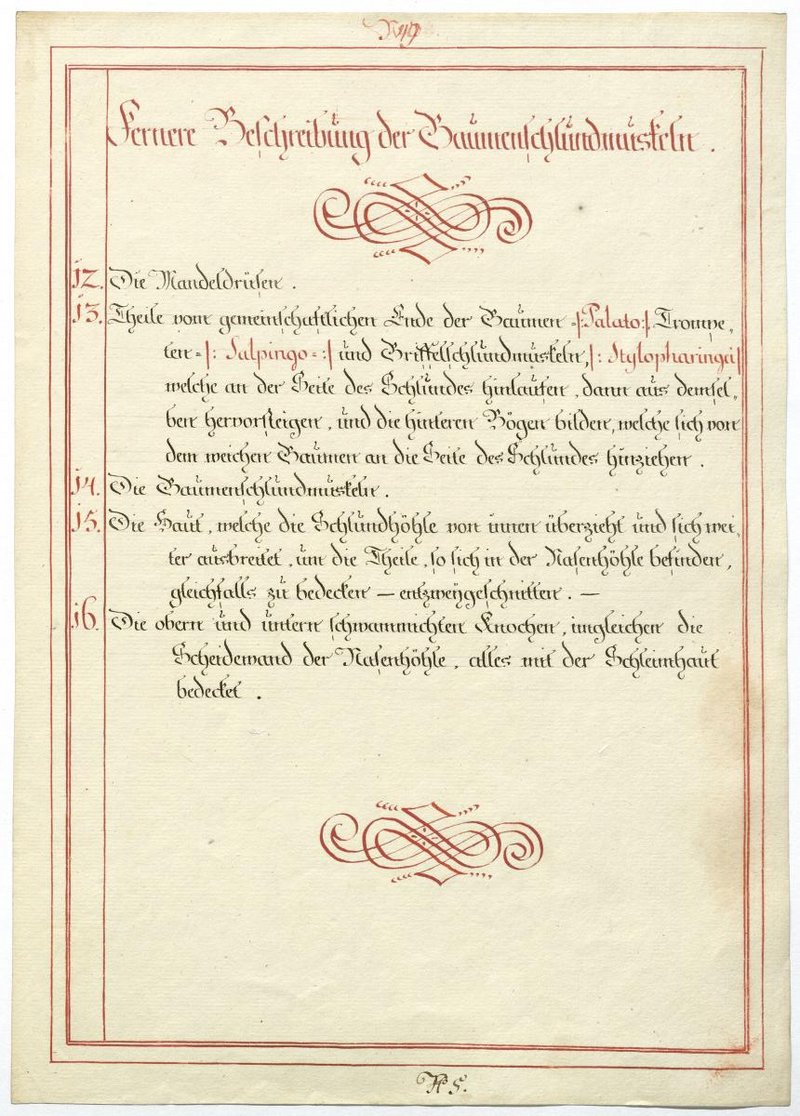 Fernere Beschreibung der Gaumenschlundmuskeln.
12. Die Mandeldrüsen.
13. Theile vom gemeinschaftlichen Ende der Gaumen =|:Palato:|, Trompe,
ten=|: Salpingo=:| und Griffelschlundmuskeln,|: Stylopharingæi|
welche an der Seite des Schlundes hinlaufen, dann aus demsel,
ben hervorsteigen, und die hinteren Bögen bilden, welche sich von
dem weichen Gaumen an die Seite des Schlundes hinziehen.
14. Die Gaumenschlundmuskeln.
15. Die Haut, welche die Schlundhöhle von innen überzieht und sich wei,
ter ausbreitet, um die Theile, so sich in der Nasenhöhle befinden,
gleichfalls zu bedecken — entzweygeschnitten. —
16. Die obern und untern schwammichten Knochen, imgleichen die
Scheidewand der Nasenhöhle, alles mit der Schleimhaut
bedecket.